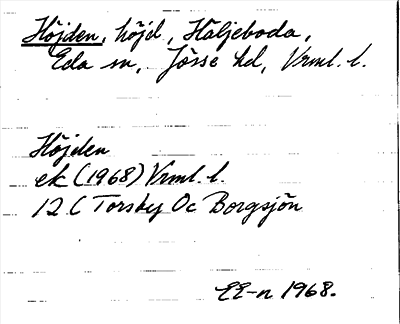 Höjden, höjd, Häljeboda,
Eda sn, Jösse hd, Vrml. l.
Höjden
ek (1968) Vrml. l.
12 C Torsby Oc Borgsjön
EE-n 1968.